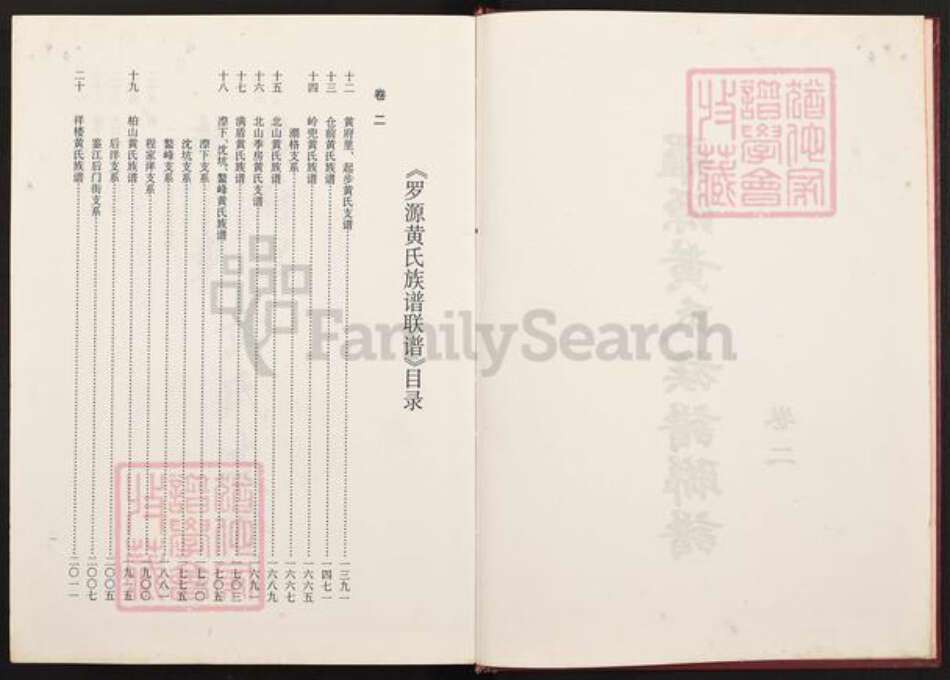 《罗源黄氏族谱联谱》目录
卷二
十二 黄府里、起步黄氏支谱 一三九一
十三 仓前黄氏族谱 一四七一
十四 岭兜黄氏族谱 一六六五
潮格支系 一六六七
十五 北山黄氏族谱 一六八九
十六 北山季房黄氏支谱 一六九一
十七 满盾黄氏族谱 一七〇三
十八 漈下、沈坑、鳌峰黄氏族谱 一七〇五
漈下支系
沈坑支系 一七七五
鳌峰支系 一八八一
程家洋支系 一九〇〇
十九 柏山黄氏族谱 一九一五
后洋支系 二〇〇五
鉴江后门街支系 二〇〇七
二十 祥楼黄氏族谱 二〇一一
FamilySearch
卷二